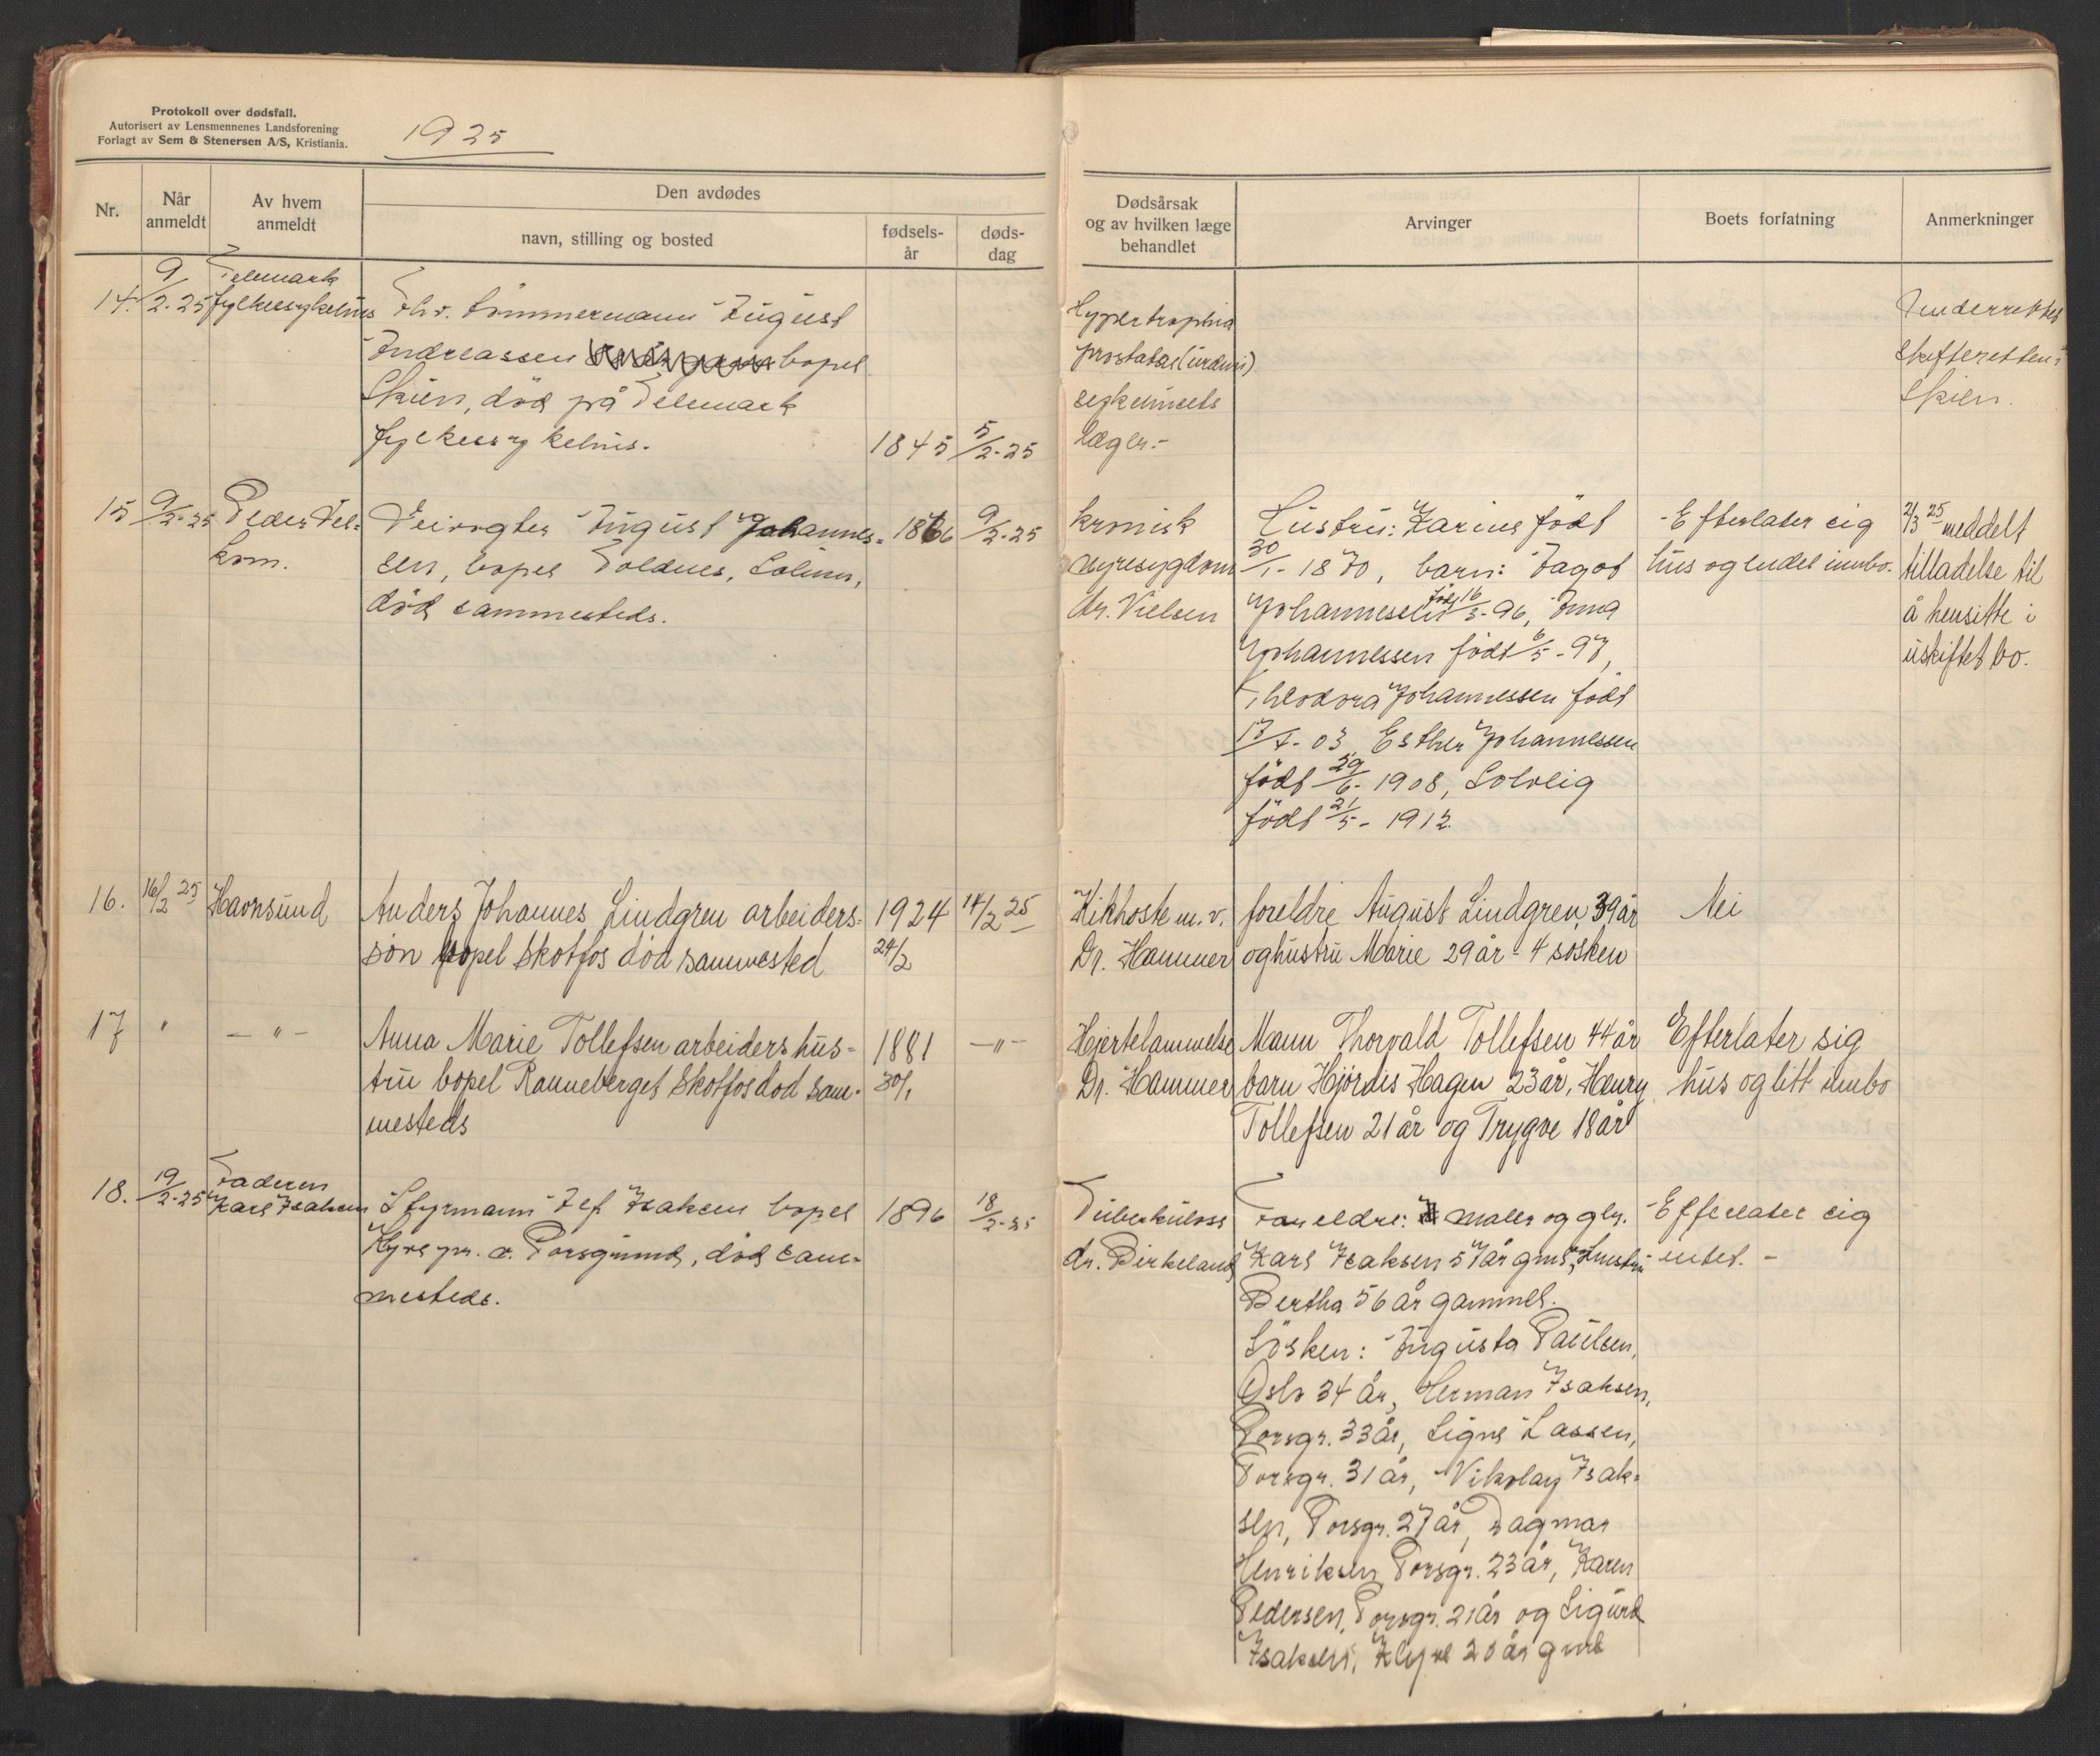 Protokoll over dødsfall.
Autorisert av Lensmennenes Landsforening
Forlagt av Sem & Stenersen A/S, Kristiania.
1925
Nr.
Når
anmeldt
Av hvem
anmeldt
Den avdødes
navn, stilling og bosted
fødsels-
år
døds-
dag
Dødsårsak
og av hvilken læge
behandlet
Arvinger
Boets forfatning
Anmerkninger
14.
9/2-25
Telemark
fylkessykehus
fhv. tømmermann August
Andreassen bopel
Skien, død på Telemark
fylkessykehus.
1845
5/2-25
Hypertrophia
prostatae
sykehusets
læger.-
Underrettet
skifteretten i
Skien.
15
9/2-25
Peder
kom.
Veivogter August Johannes=
sen, bopel Solum,
død sammesteds.
1866
9/2-25
kronisk
nyresygdom
dr. Nielsen
Hustru: Karine født
30/1-1870, barn: Jagob
Johannesen født 16/3-96, Anna
Johannessen født 6/5-97,
Theodora Johannessen født
17/7-03, Esther Johannessen
født 29/6-1908, Solveig
født 21/5-1912.
Efterlater sig
hus og endel innbo.
2/3 25 meddelt
tilladelse til
å hensitte i
uskiftet bo.
16.
16/2 25
Havnsund
Anders Johannes Lindgren arbeiders-
søn bopel Skotfos død sammested
1924
24/2
14/2 25
Kikhoste m. v.
Dr. Hammer
foreldre August Lindgren, 39 år
og hustru Marie 29 år - 4 søsken
Nei
17
"
- " -
Anna Marie Tollefsen arbeiders hus-
tru bopel Ranneberget Skotfos død sam-
mesteds
1881
30/1
- " -
Hjertelammelse
Dr. Hammer
Mann Thorvald Tollefsen 44 år
barn Hjørdis Hagen 23 år, Henry
Tollefsen 21 år og Trygve 18 år
Efterlater sig
hus og litt innbo
18.
19/2-25
Faderen
Karl Isaksen
Styrmann Alf Isaksen bopel
Klyve pr. Porsgrund, død sam-
mesteds.
1896
18/2-25
Tuberkulose
dr. Birkeland
Foreldre: maler og
Karl Isaksen 57 år gml, hustru
Bertha 56 år gammel.
Søsken: Augusta Paulsen,
Oslo 34 år, Herman Isaksen,
Porsgr. 33 år, Signe Lassen,
Porsgr. 31 år, Nikolay Isak-
sen, Porsgr. 27 år, Dagmar
Henriksen Porsgr. 23 år, Karen
Pedersen, Porsgr. 21 år og Sigurd
Isaksen, Klyve 20 år gml
Efterlater sig
intet. -